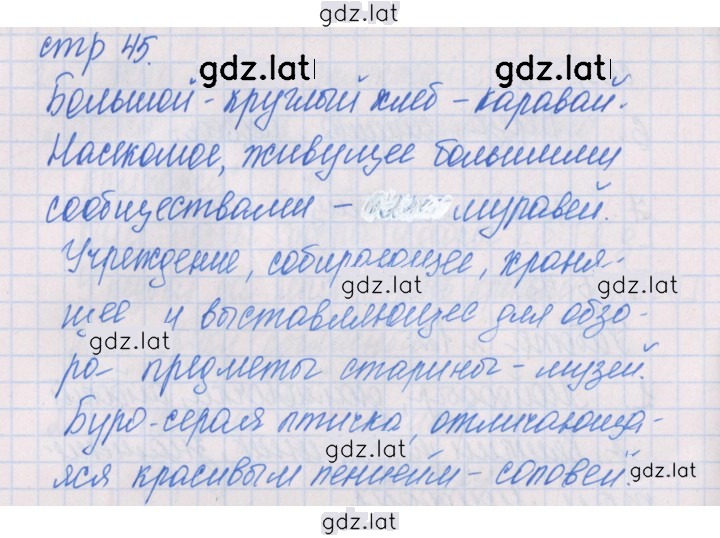 gdz.lat
стр 45.
gdz.lat gdz.lat
Большой - круглый хлеб - каравай.
Насекомое, живущее большими
сообществами - муравей.
Учреждение, собирающее, храня-
gdz.lat gdz.lat
щее и выставляющее для обзо-
gdz.lat gdz.lat
ра предметы старины - музей.
Буро-серая птичка, отличающа-
gdz.lat gdz.lat
яся красивым пением - соловей.
gdz.lat